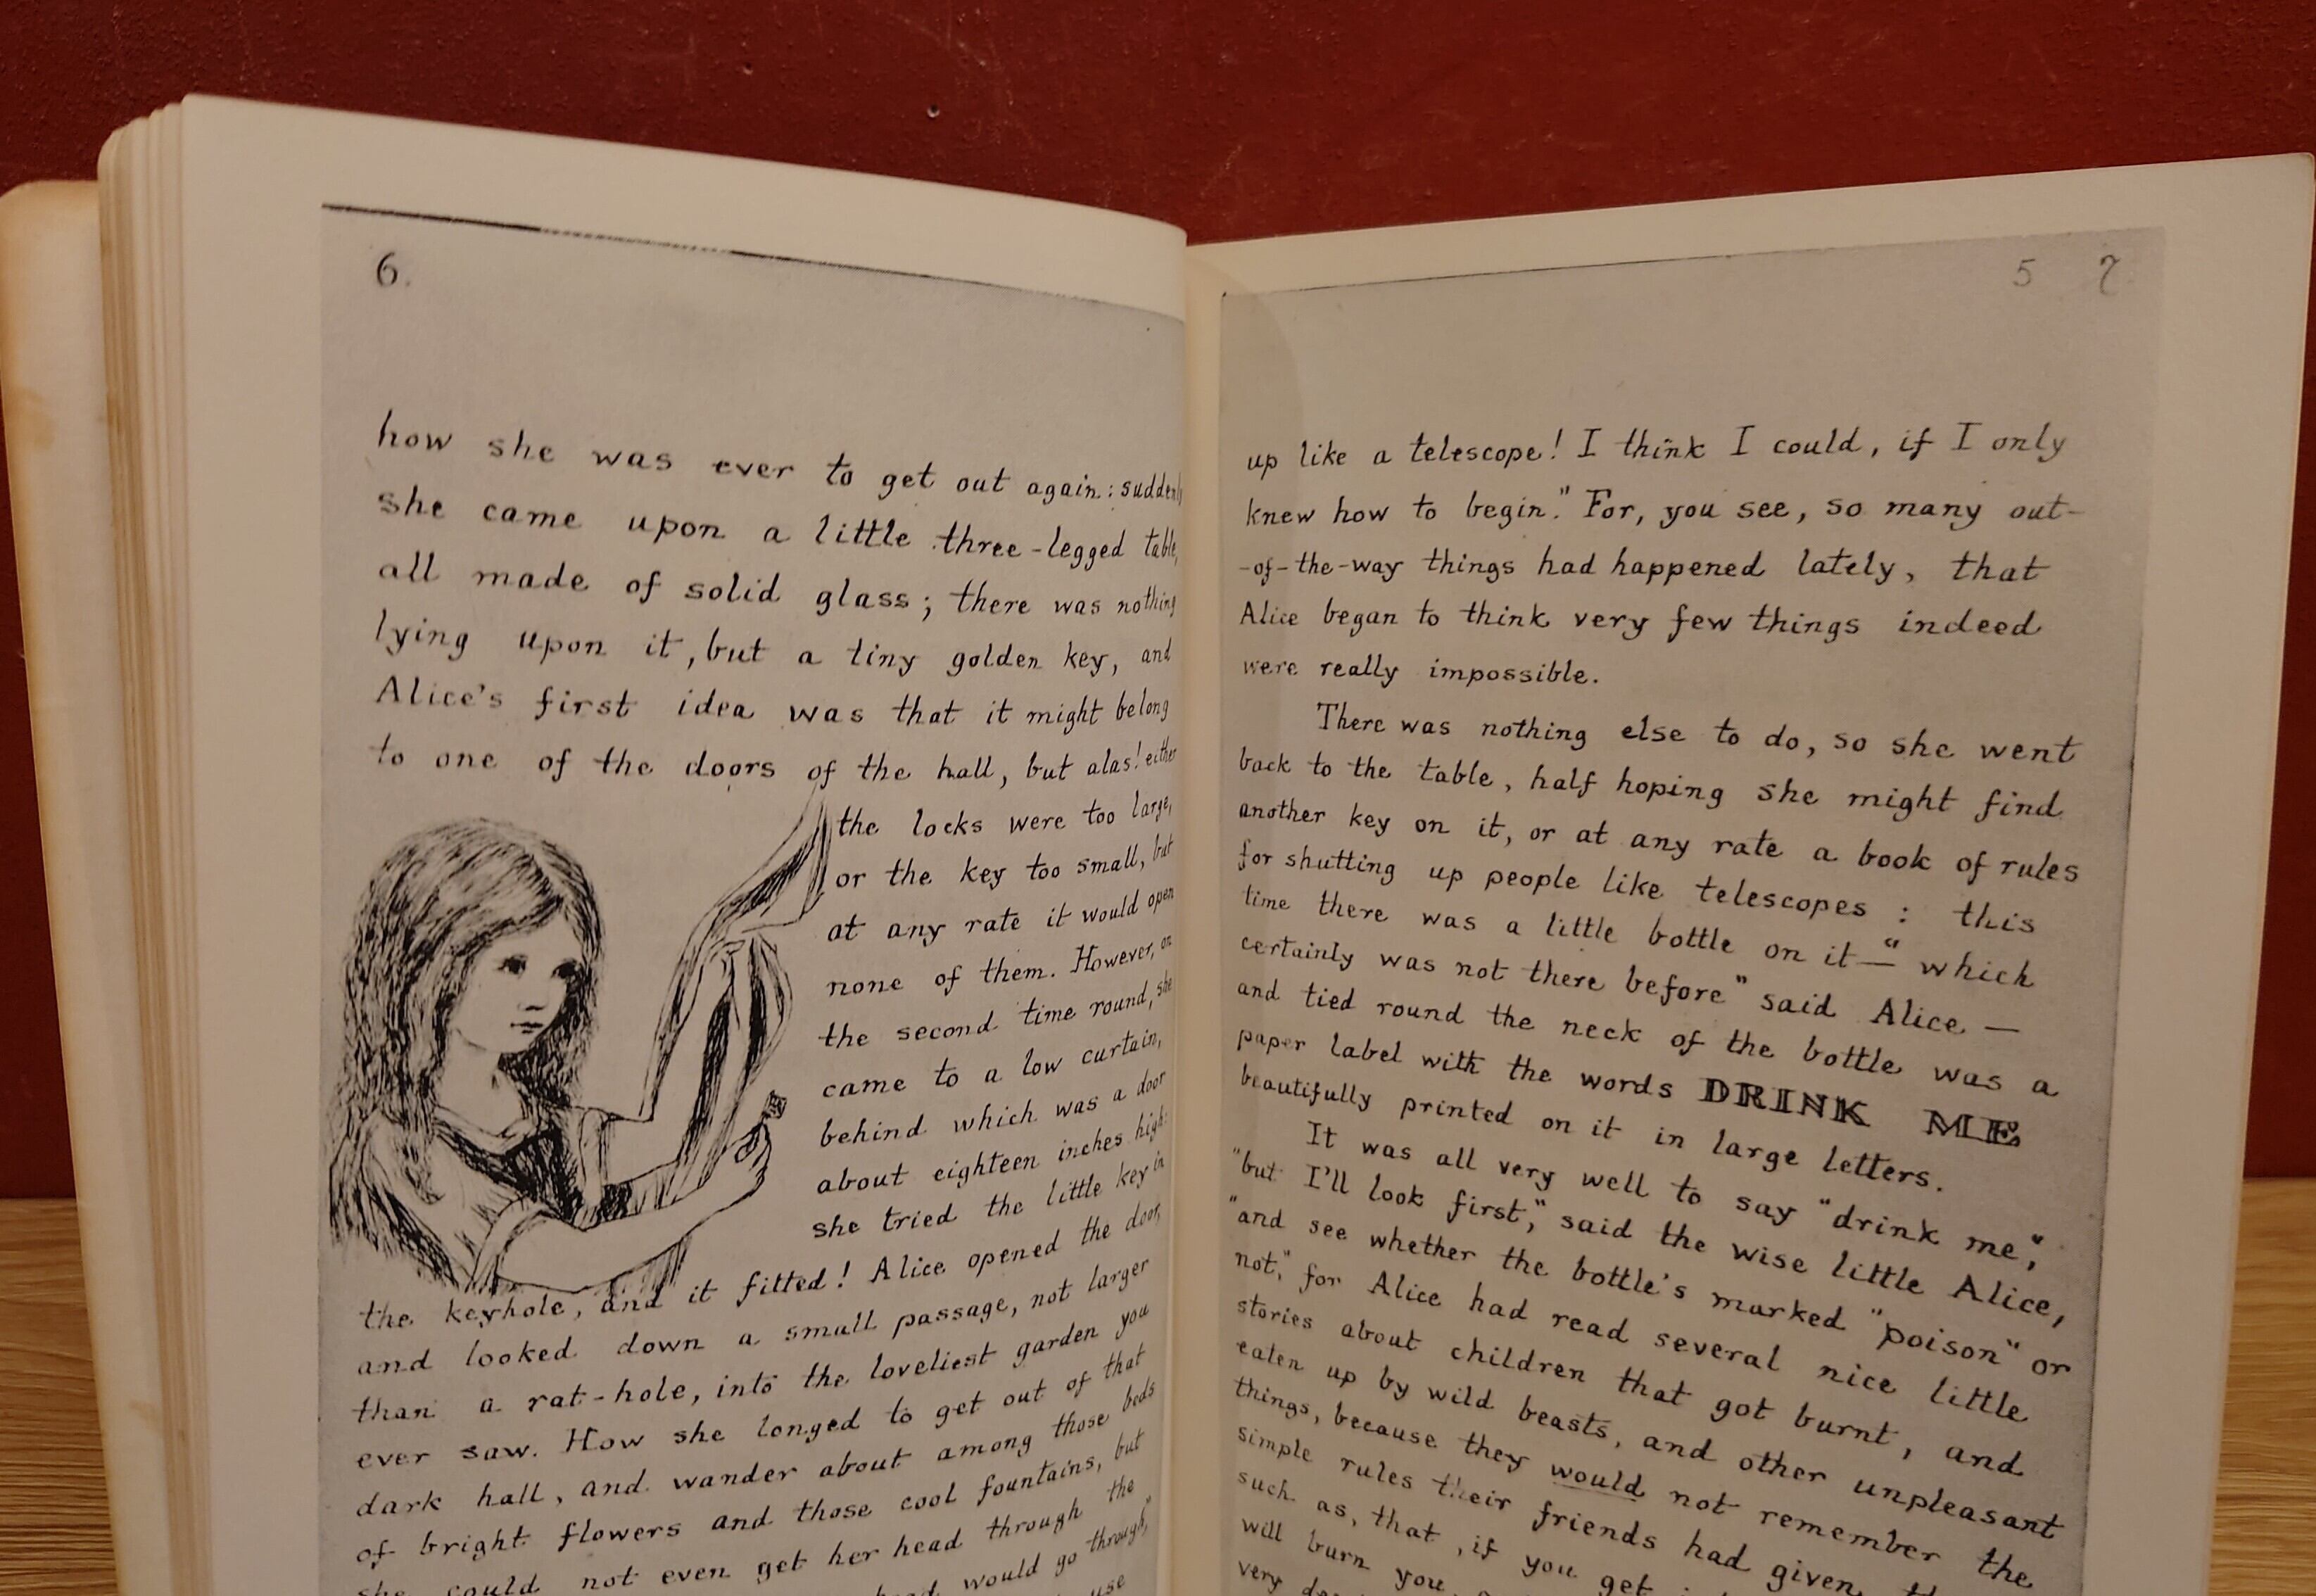 6.
how she was ever to get out again: suddenly
she came upon a little three-legged table,
all made of solid glass; there was nothing
lying upon it, but a tiny golden key, and
Alice's first idea was that it might belong
to one of the doors of the hall, but alas! either
the locks were too large,
or the key too small, but
at any rate it would open
none of them. However, on
the second time round, she
came to a low curtain,
behind which was a door
about eighteen inches high:
she tried the little key in
the keyhole, and it fitted! Alice opened the door,
and looked down a small passage, not larger
than a rat-hole, into the loveliest garden you
ever saw. How she longed to get out of that
dark hall, and wander about among those beds
of bright flowers and those cool fountains, but
she could not even get her head through the
head would go through,"
use
5 7
up like a telescope! I think I could, if I only
knew how to begin." For, you see, so many out-
-of-the-way things had happened lately, that
Alice began to think very few things indeed
were really impossible.
There was nothing else to do, so she went
back to the table, half hoping she might find
another key on it, or at any rate a book of rules
for shutting up people like telescopes: this
time there was a little bottle on it—"which
certainly was not there before" said Alice—
and tied round the neck of the bottle was a
paper label with the words DRINK ME
beautifully printed on it in large letters.
It was all very well to say "drink me,"
"but I'll look first," said the wise little Alice,
"and see whether the bottle's marked "poison" or
not," for Alice had read several nice little
stories about children that got burnt, and
eaten up by wild beasts, and other unpleasant
things, because they would not remember the
simple rules their friends had given
such as, that, if you get
will burn you
very